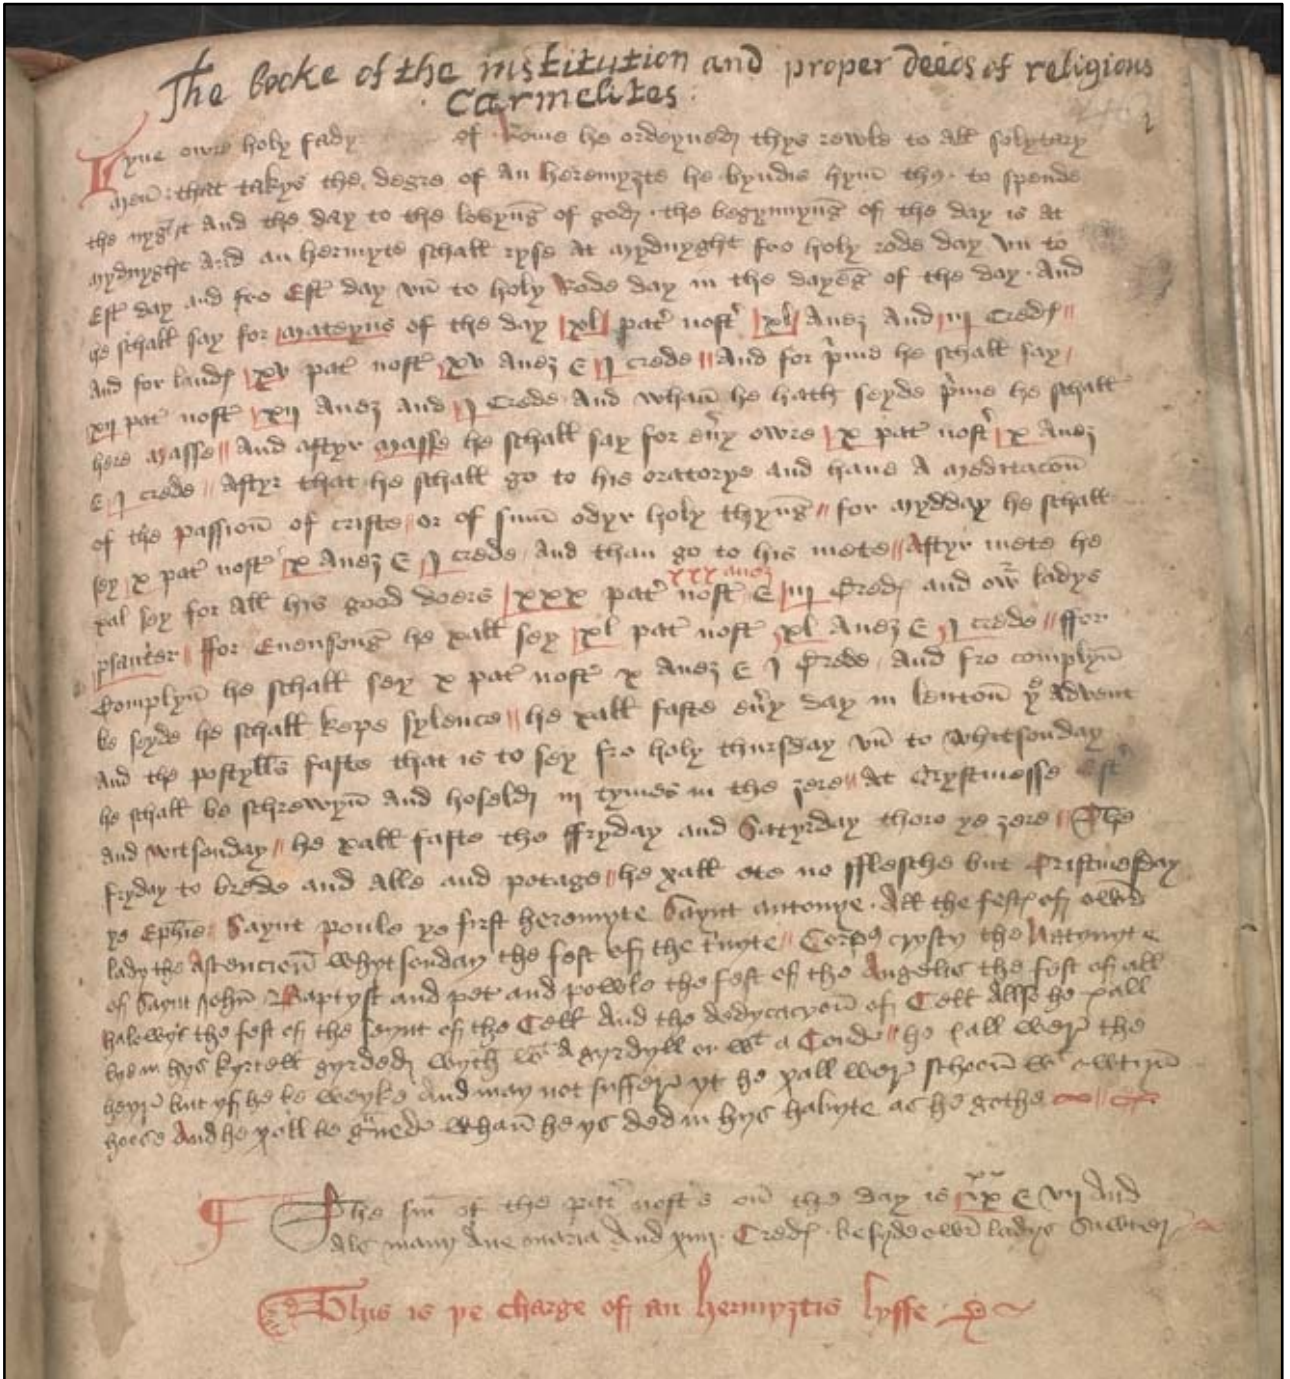 The booke of the institution and proper deeds of religious
Carmelites
Lyne owre holy fady of Rome he ordeyned thys rewle to all solytary
men that takys the degre of an heremyzte he byndis hym thus to spende
the nyght and the day to the lovyng of god the begynnyng of the day is at
mydnyght And an hermyte schall ryse At mydnyght fro holy rode day vn to
Est day and fro Est day vn to holy Rode day in the dayeng of the day And
he schall say for mateyns of the day xl pat nost xl Auez And iij Cred
And for laud xv pat nost xv Auez & j crede And for pme he schall say
xij pat nost xij Auez And j Crede And whan he hath seyde pme he schall
here masse And aftyr masse he schall say for eny owre x pat nost x Auez
& j crede Aftyr that he schall go to his oratorye and haue A meditacon
of the passion of criste or of sum odyr holy thyng for mydday he schall
sey x pat nost x Auez & j crede And than go to his mete Aftyr mete he
xxx auez
xal sey for All his good doers xxx pat nost & iij Cred and owr ladys
psauter ffor Euensong he xall sey xl pat nost xl Auez & j crede ffor
Complyn he schall sey x pat nost x Auez & j Crede And fro complyn
be seyde he schall kepe sylence he xall faste eny day in lenton ye Advent
And the postylls faste that is to sey fro holy thursday vn to whitsonday
he schall be schrewyn And hoseld iij tymes in the zere At Crystmesse Est
And witsonday he xall faste the ffryday and Satyrday thoro ye zere The
fryday to brede and Alle and potage he xall ete no fflesche but Cristmesday
ye Ephie Saynt poule ye first heremyte Saynt antonye All the fest of owr
lady the Astencion whytsonday the fest off the trinyte Corpus crysty the Natyuyte
of Saynt John Baptyst and pet and powle the fest off the Angelis the fest of all
halowys the fest off the seynt off the Cell And the dedycacyon off Cell Allso he xall
lye in hys kyrtell gyrded wyth A gyrdyll or wt a Corde he xall wer the
heyr but yf he be weyke And may not suffer yt he xall wer schoon wt owtyn
hoose And he xall be whan he ys ded in hys habyte as he gothe
The sm of the pat nost on the day is ix & vij And
Als many Aue maria And xiiij Cred besyde owr ladys Sawter
This is ye charge off an hermyztis lyffe